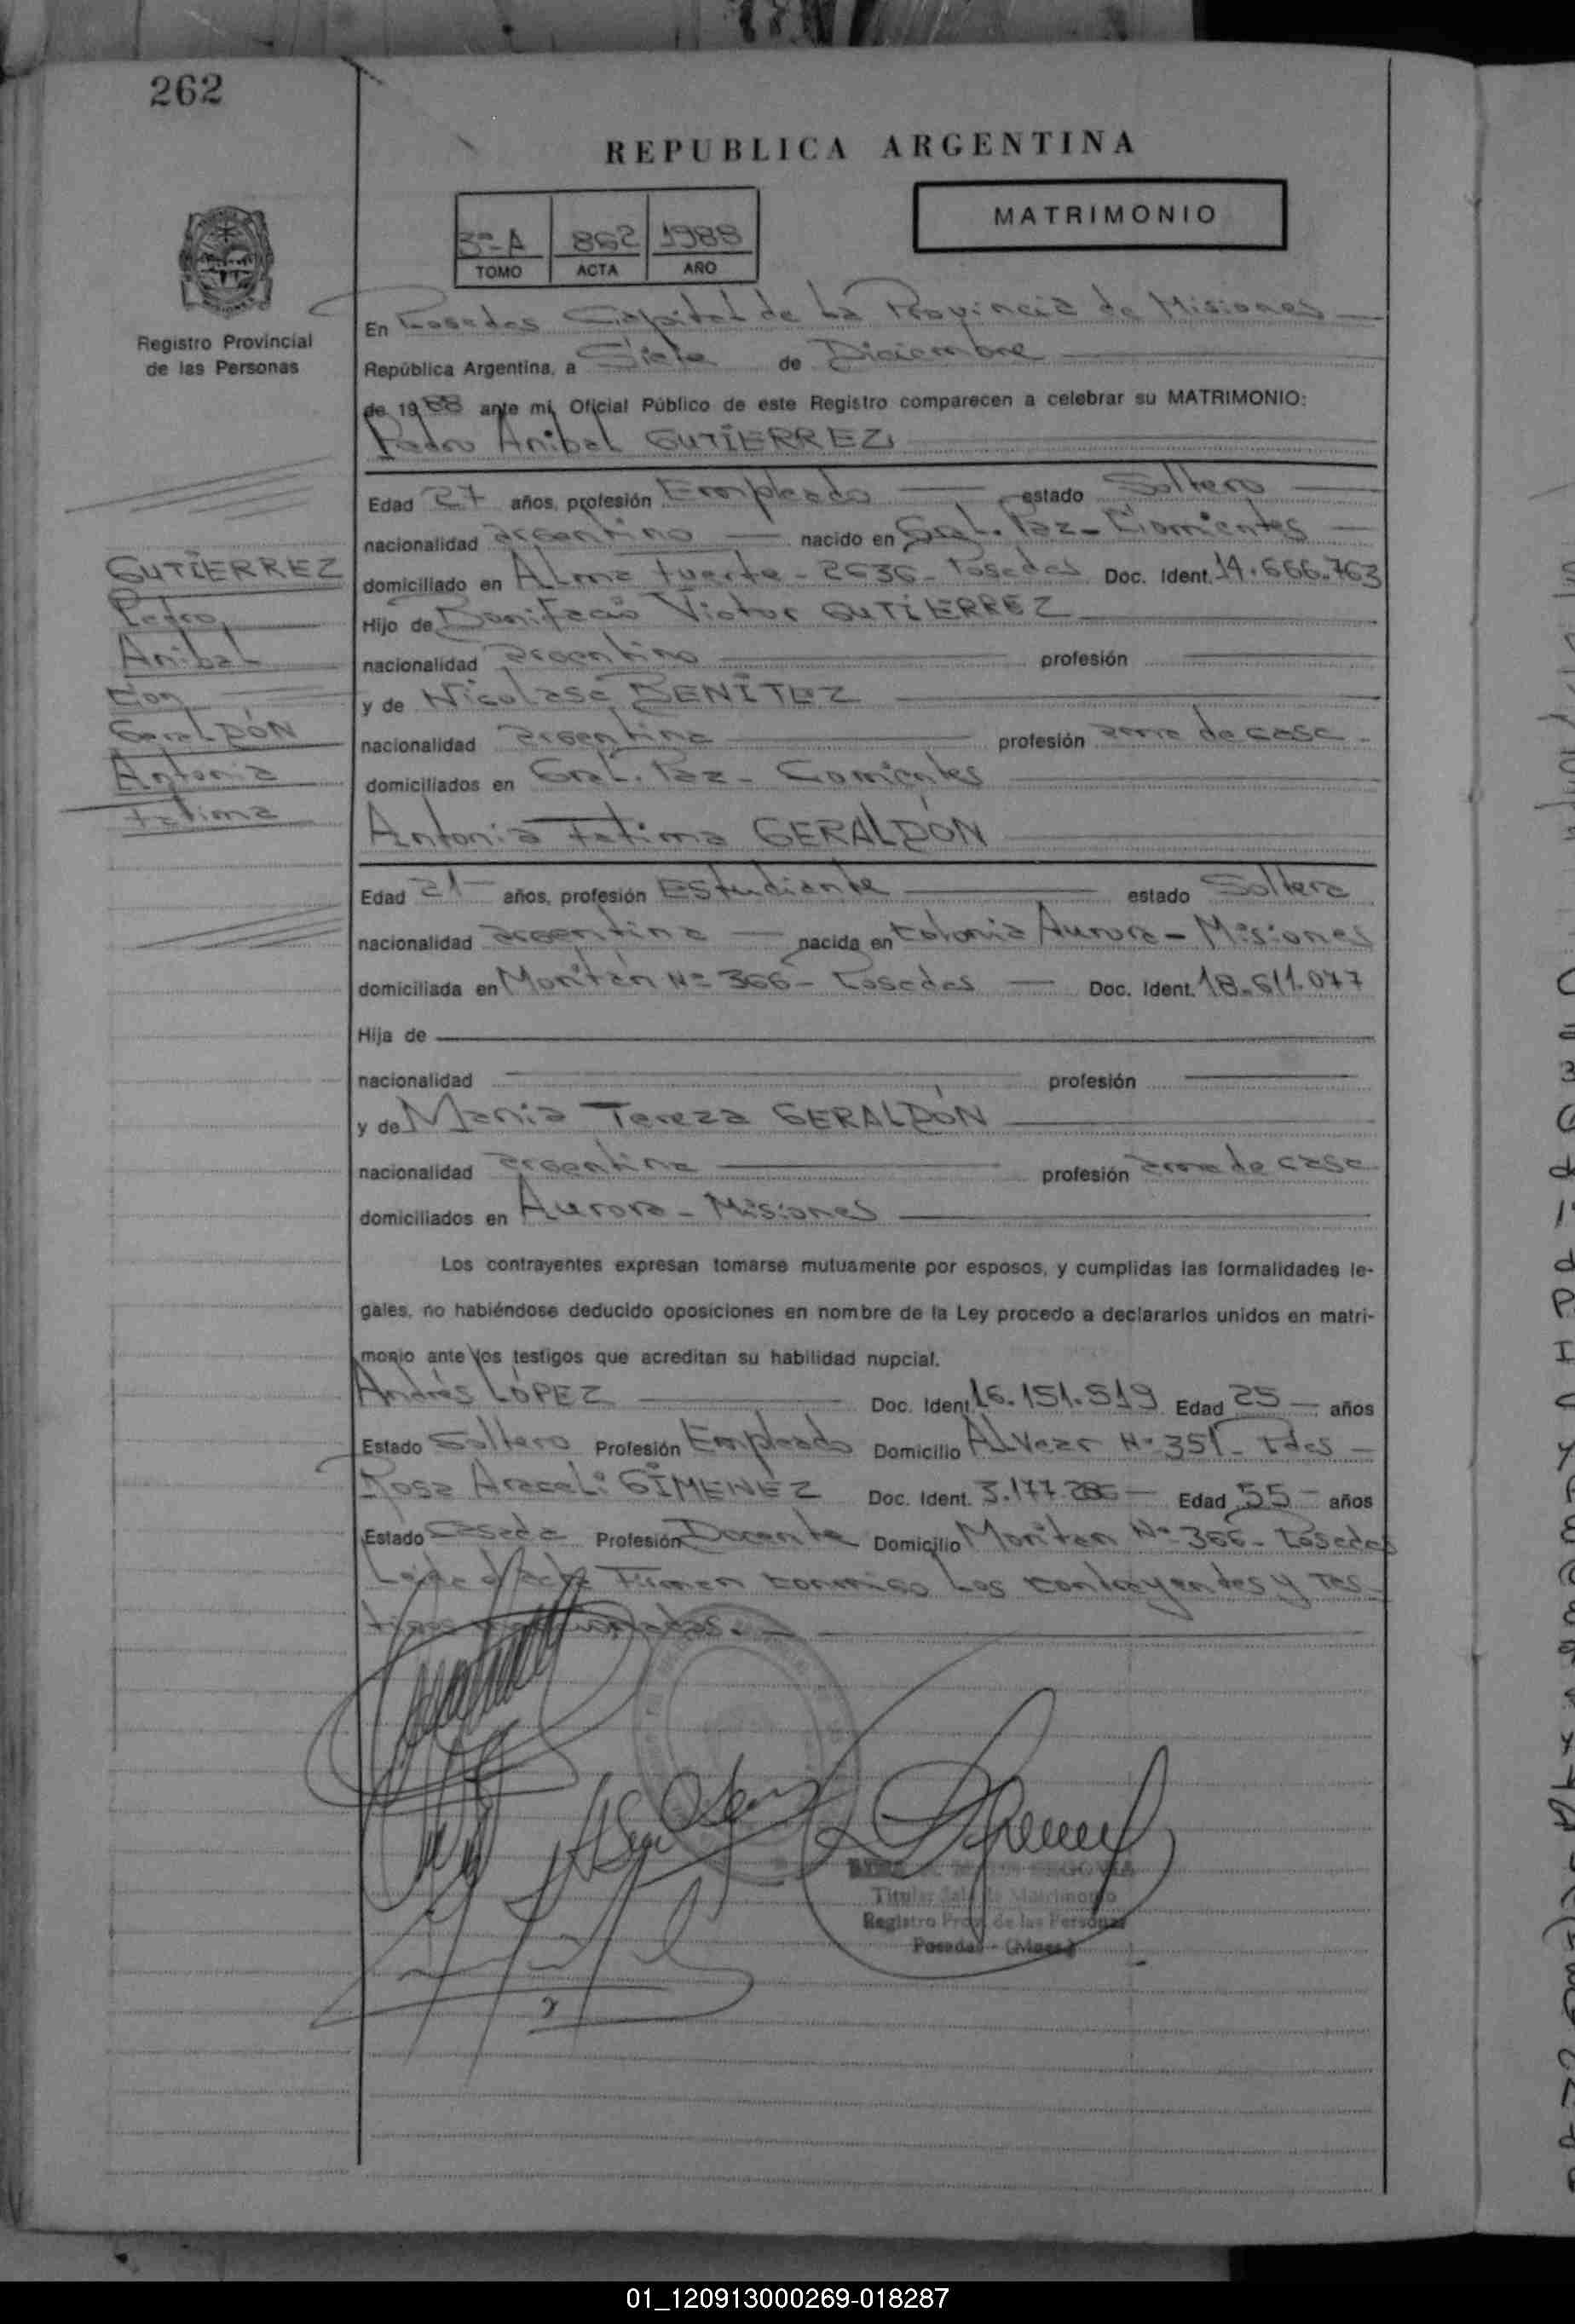 262
REPUBLICA ARGENTINA
MATRIMONIO
3º-A 862 1988
TOMO ACTA AÑO
Registro Provincial
de las Personas
En Posadas Capital de La Provincia de Misiones
República Argentina, a Siete de Diciembre
de 1988 ante mi, Oficial Público de este Registro comparecen a celebrar su MATRIMONIO:
Pedro Anibal GUTIERREZ
Edad 27 años, profesión Empleado estado Soltero
nacionalidad argentino nacido en Gral. Paz - Corrientes
domiciliado en Alma Fuerte - 2636 - Posadas Doc. Ident. 14.666.763
Hijo de Bonifacio Victor GUTIERREZ
nacionalidad argentino profesión
y de Nicolasa BENITEZ
nacionalidad argentina profesión ama de casa
domiciliados en Gral. Paz - Corrientes
Antonia Fatima GERALDÓN
GUTIERREZ
Pedro
Anibal
Con
GeralDÓN
Antonia
Fatima
Edad 21 años, profesión Estudiante estado Soltera
nacionalidad argentina nacida en Colonia Aurora - Misiones
domiciliada en Moritán Nº 366 - Posadas Doc. Ident. 18.611.077
Hija de
nacionalidad profesión
y de Maria Tereza GERALDÓN
nacionalidad argentina profesión ama de casa
domiciliados en Aurora - Misiones
Los contrayentes expresan tomarse mutuamente por esposos, y cumplidas las formalidades le-
gales, no habiéndose deducido oposiciones en nombre de la Ley procedo a declararlos unidos en matri-
monio ante los testigos que acreditan su habilidad nupcial.
Andrés LÓPEZ Doc. Ident. 16.151.519 Edad 25 años
Estado Soltero Profesión Empleado Domicilio Alvear Nº 351 - Pdas
Rosa Araceli GIMENEZ Doc. Ident. 3.177.286 Edad 55 años
Estado Casada Profesión Docente Domicilio Moritan Nº 366 - Posadas
Leida el acta Firman conmigo Los contrayentes y tes-
tigos
Titular Sala de Matrimonio
Registro Prov. de las Personas
Posadas - (Mnes.)
01_120913000269-018287